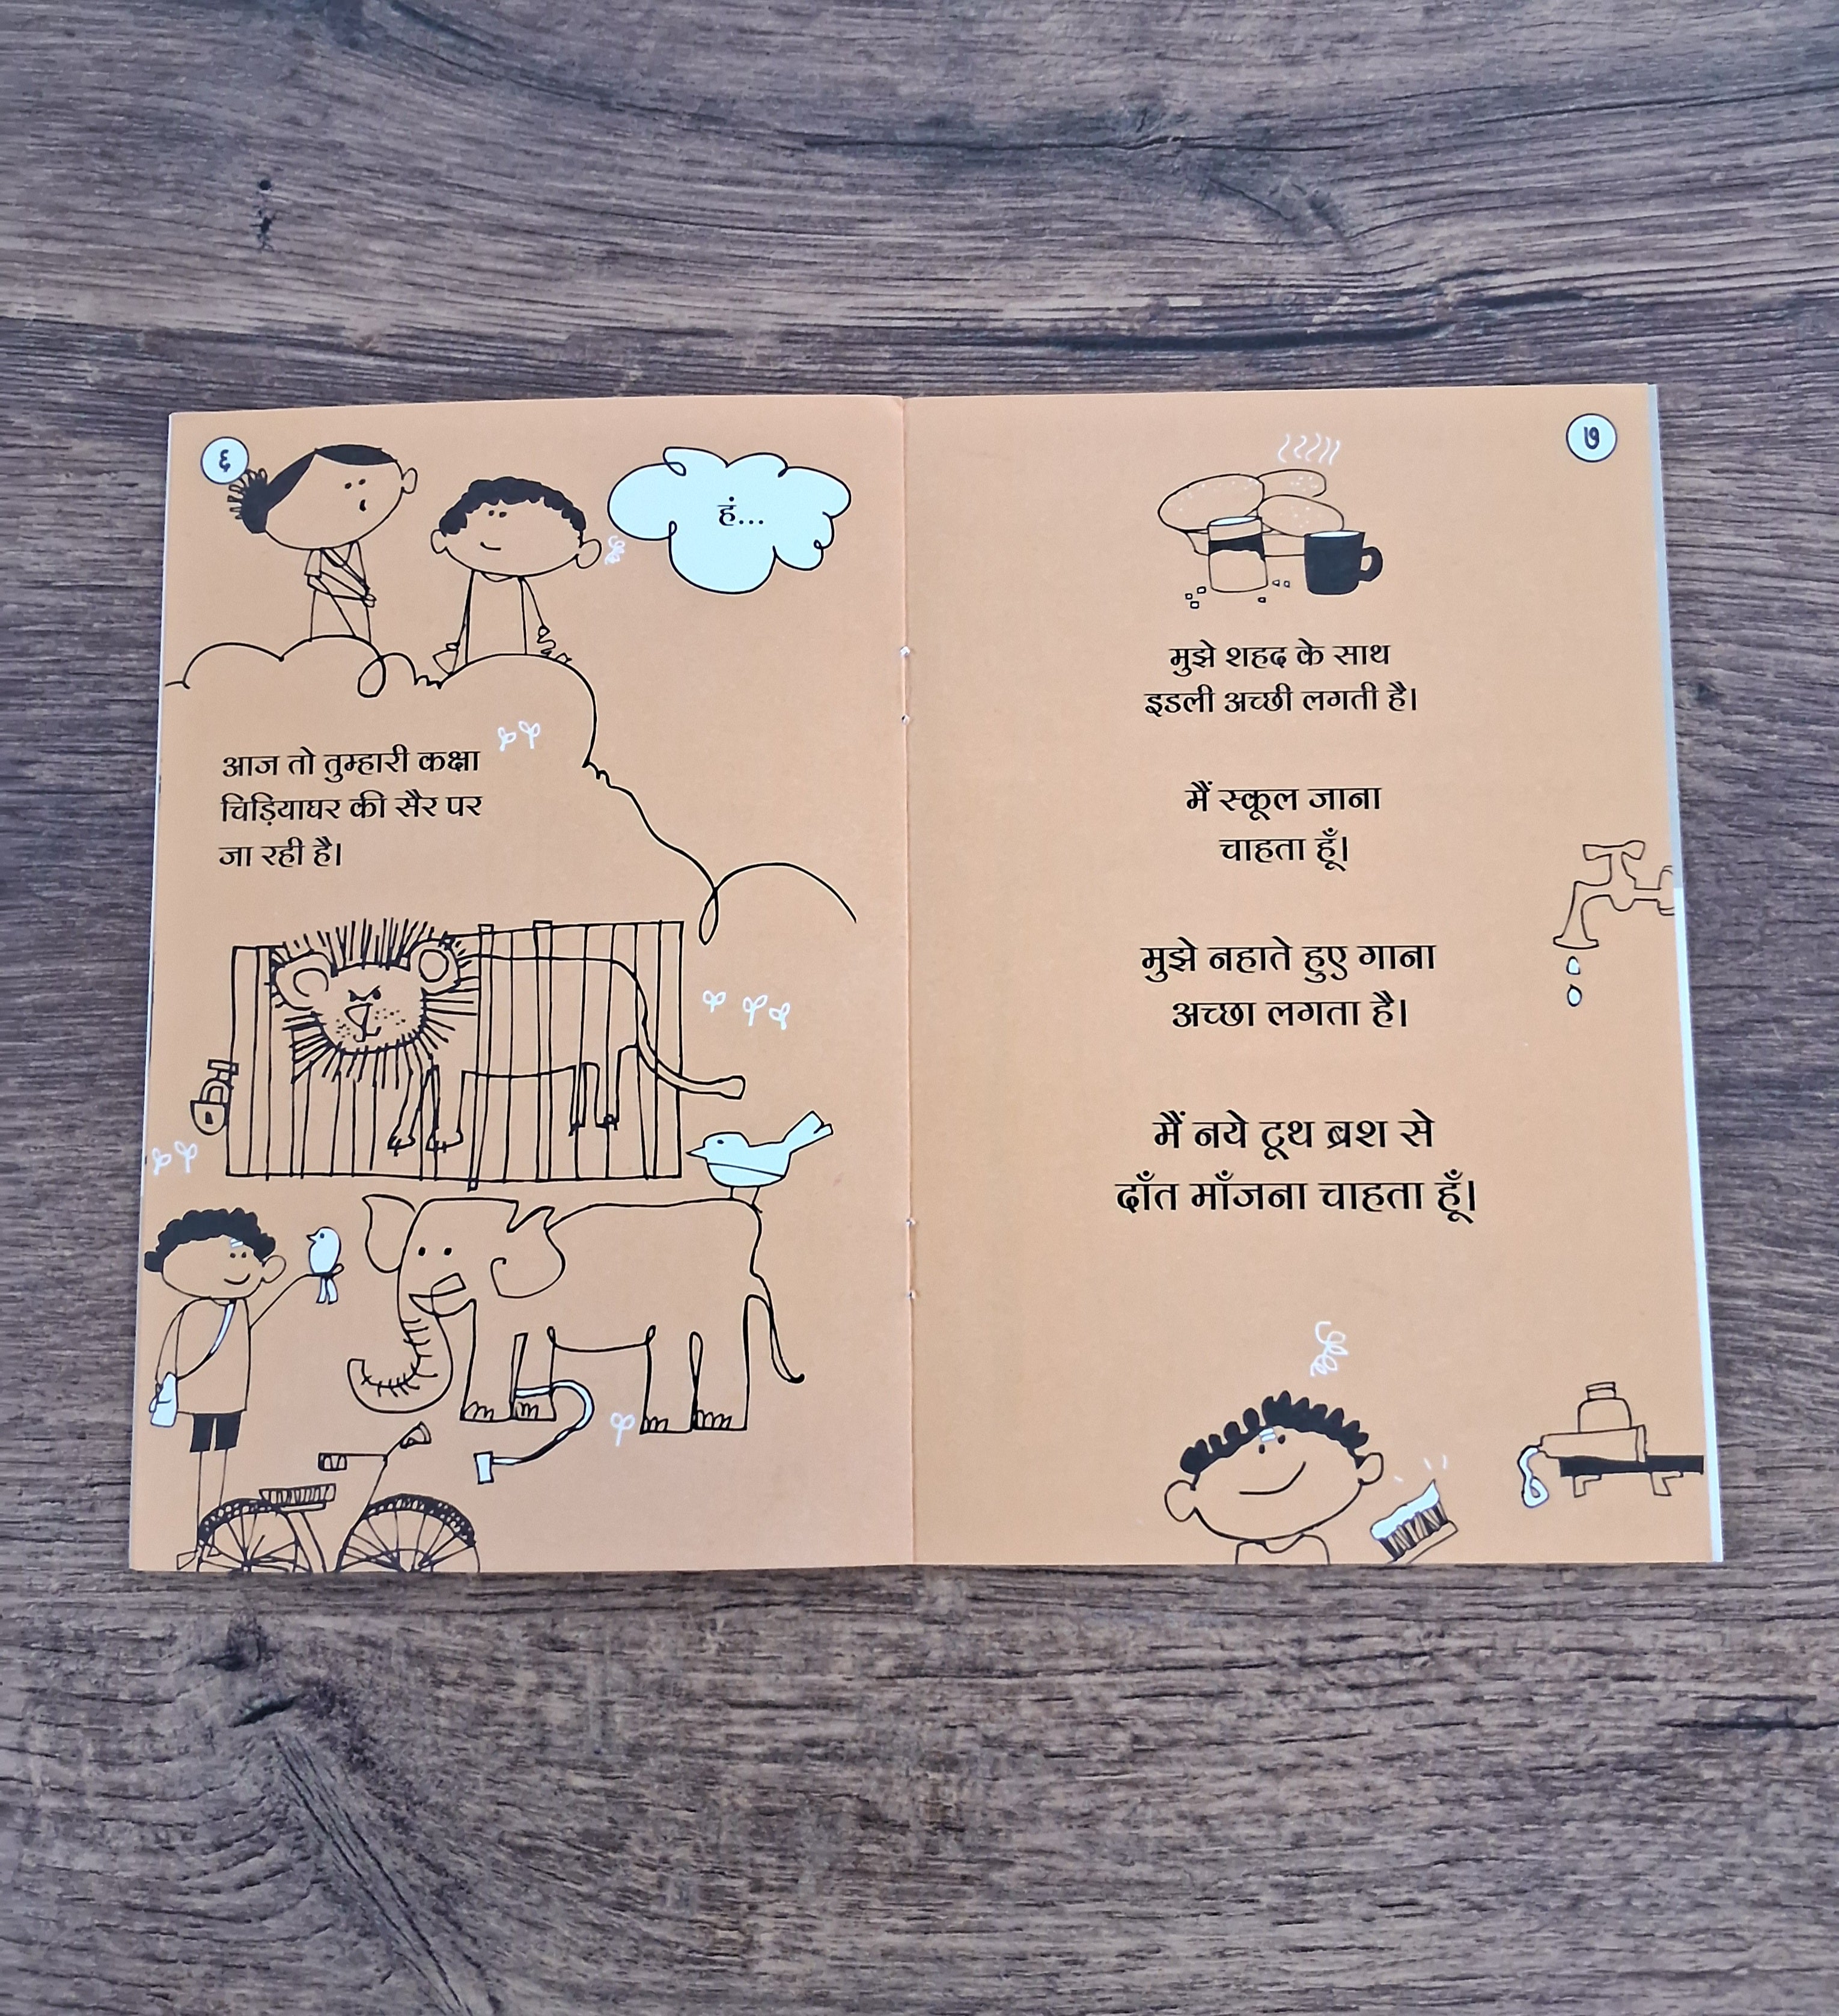 ६
हं...
आज तो तुम्हारी कक्षा
चिड़ियाघर की सैर पर
जा रही है।
७
मुझे शहद के साथ
इडली अच्छी लगती है।
मैं स्कूल जाना
चाहता हूँ।
मुझे नहाते हुए गाना
अच्छा लगता है।
मैं नये टूथ ब्रश से
दाँत माँजना चाहता हूँ।